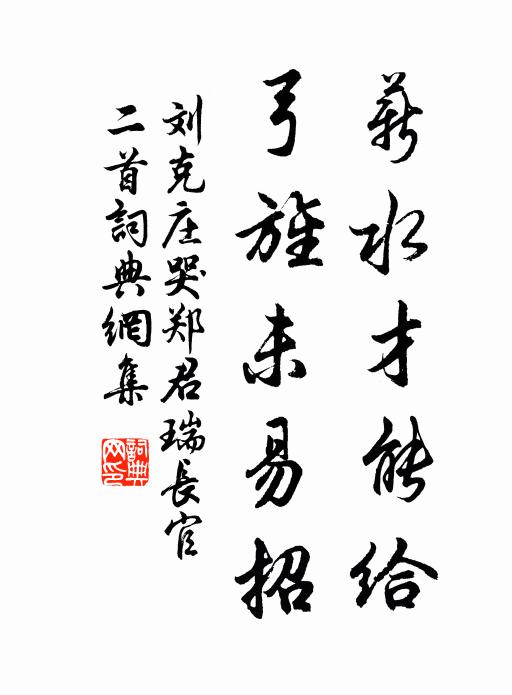 薪水才能给
弓旌未易招
刘克庄哭郑君瑞長官
二首詞典網集
詞典
网印